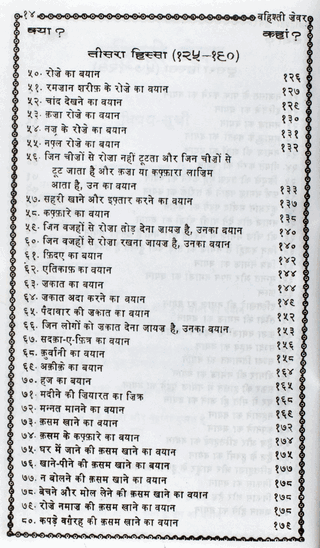 १४ बहिश्ती ज़ेवर
क्या ? कहां ?
तीसरा हिस्सा (१२५-१९०)
५०. रोज़े का बयान १२६
५१. रमज़ान शरीफ़ के रोज़े का बयान १२७
५२. चांद देखने का बयान १२९
५३. क़ज़ा रोज़े का बयान १३०
५४. नज़्र के रोज़े का बयान १३१
५५. नफ़्ल रोज़े का बयान १३२
५६. जिन चीज़ों से रोज़ा नहीं टूटता और जिन चीज़ों से
टूट जाता है और क़ज़ा या कफ़्फ़ारा लाज़िम
आता है, उन का बयान १३३
५७. सहरी खाने और इफ़्तार करने का बयान १३७
५८. कफ़्फ़ारे का बयान १३८
५९. जिन वजहों से रोज़ा तोड़ देना जायज़ है, उनका बयान १४०
६०. जिन वजहों से रोज़ा रखना जायज़ है, उनका बयान १४०
६१. फ़िदए का बयान १४२
६२. एतिकाफ़ का बयान १४४
६३. ज़कात का बयान १४४
६४. ज़कात अदा करने का बयान १४९
६५. पैदावार की ज़कात का बयान १५२
६६. जिन लोगों को ज़कात देना जायज़ है, उनका बयान १५३
६७. सदक़ा-ए-फ़ित्र का बयान १५६
६८. क़ुर्बानी का बयान १५८
६९. अक़ीक़े का बयान १६४
७०. हज का बयान १६५
७१. मदीने की ज़ियारत का ज़िक्र १६८
७२. मन्नत मानने का बयान १६९
७३. क़सम खाने का बयान १७२
७४. क़सम के कफ़्फ़ारे का बयान १७४
७५. घर में जाने की क़सम खाने का बयान १७५
७६. खाने-पीने की क़सम खाने का बयान १७७
७७. न बोलने की क़सम खाने का बयान १७८
७८. बेचने और मोल लेने की क़सम खाने का बयान १७८
७९. रोज़े नमाज़ की क़सम खाने का बयान १७८
८०. कपड़े वग़ैरह की क़सम खाने का बयान १७९